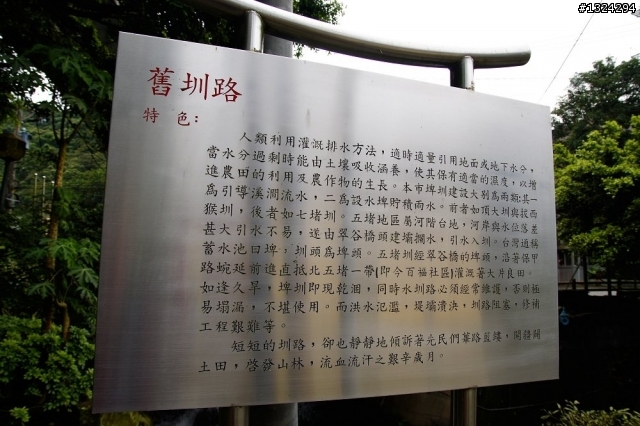 #1324294
舊圳路
特色:
人類利用灌溉排水方法,適時適量引用地面或地下水分,
當水分過剩時能由土壤吸收涵養,使其保有適當的濕度,以增
進農田的利用及農作物的生長。本市埤圳建設大別為兩類:其一
為引導溪澗流水,二為設水埤貯積雨水。前者如頂大圳與拔西
猴圳,後者如七堵圳。五堵地區屬河階台地,河岸與水位落差
甚大引水不易,遂由翠谷橋頭建壩攔水,引水入圳。台灣通稱
蓄水池曰埤,圳頭為埤頭。五堵圳經翠谷橋的埤頭,沿著保甲
路蜿延前進直抵北五堵一帶(即今百福社區)灌溉著大片良田。
如逢久旱,埤圳即現乾涸,同時水圳路必須經常維護,否則極
易塌漏,不堪使用。而洪水氾濫,堤壩潰決,圳路阻塞,修補
工程艱難等。
短短的圳路,卻也靜靜地傾訴著先民們篳路藍縷,開疆闢
土田,啓發山林,流血流汗之艱辛歲月。